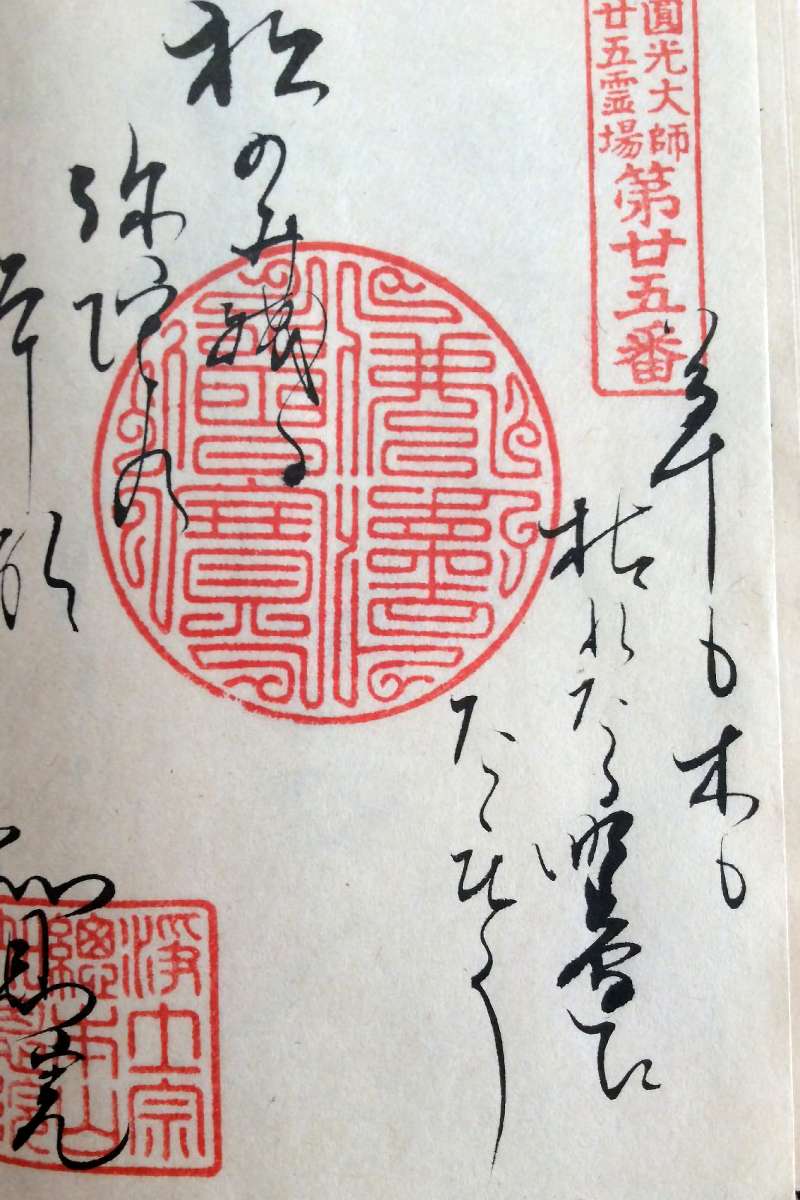 圓光大師
廿五霊場
第廿五番
草も木も
枯れたる野邊に
たゝひとり
松のみ残る
弥陀乃
佛法僧寶
浄土宗
總本山